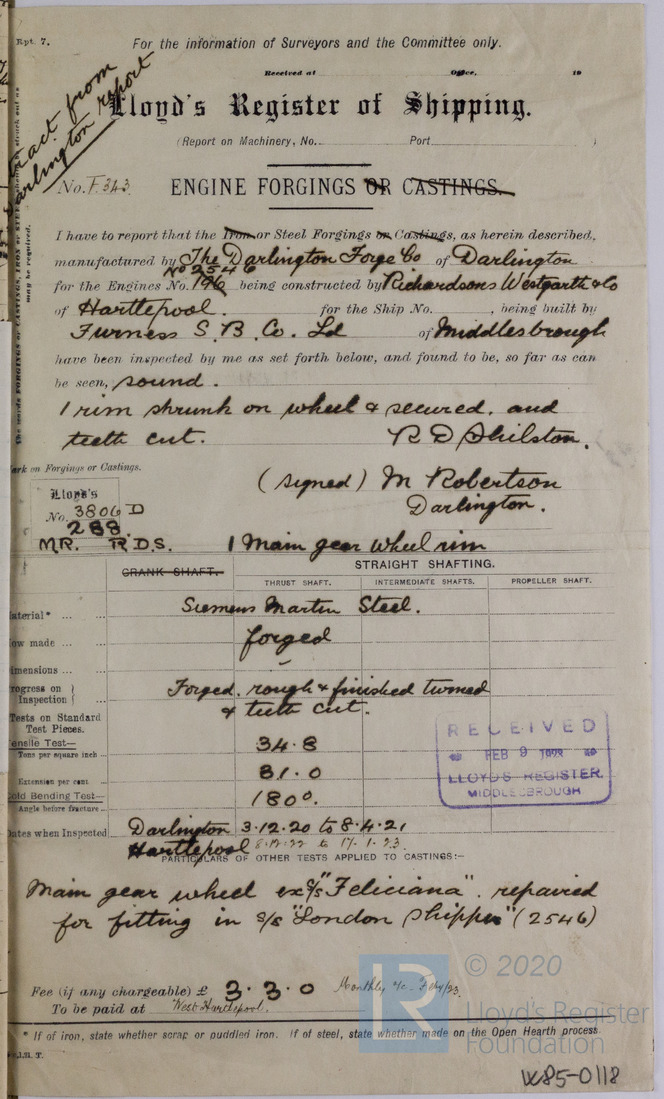 Rpt. 7.
For the information of Surveyors and the Committee only.
Received at Office, 19
tract from
arlington report
Lloyd's Register of Shipping.
(Report on Machinery, No. Port )
No. F.343
ENGINE FORGINGS OR CASTINGS.
I have to report that the Iron or Steel Forgings or Castings, as herein described,
manufactured by The Darlington Forge Co of Darlington
No 2546
for the Engines No. 196 being constructed by Richardsons Westgarth & Co
of Hartlepool. for the Ship No. , being built by
Furness S. B. Co. Ld of Middlesbrough
have been inspected by me as set forth below, and found to be, so far as can
be seen, sound.
1 rim shrunk on wheel & secured. and
teeth cut. R D Shilston.
ark on Forgings or Castings.
(signed) M Robertson
Darlington.
Lloyd's
No. 3806 D
288.
MR. R.D.S. 1 Main gear wheel rim
CRANK SHAFT. STRAIGHT SHAFTING.
THRUST SHAFT. INTERMEDIATE SHAFTS. PROPELLER SHAFT.
aterial* Siemens Martin Steel.
ow made forged
imensions –
rogress on Inspection Forged, rough & finished turned
& teeth cut.
Tests on Standard
Test Pieces.
ensile Test—
Tons per square inch 34.8
Extension per cent. 31.0
old Bending Test—
Angle before fracture 180°.
RECEIVED
FEB 9 1923
LLOYD'S REGISTER.
MIDDLESBROUGH
ates when Inspected Darlington 3.12.20 to 8.4.21
Hartlepool 8.12.22 to 17.1.23
PARTICULARS OF OTHER TESTS APPLIED TO CASTINGS:—
Main gear wheel ex s/s "Feliciana". repaired
for fitting in s/s "London Shipper" (2546)
Fee (if any chargeable) £ 3.3.0 Monthly a/c. Feby/23.
To be paid at West Hartlepool.
* If of iron, state whether scrap or puddled iron. If of steel, state whether made on the Open Hearth process.
LR
© 2020
Lloyd's Register
Foundation
W85-0118